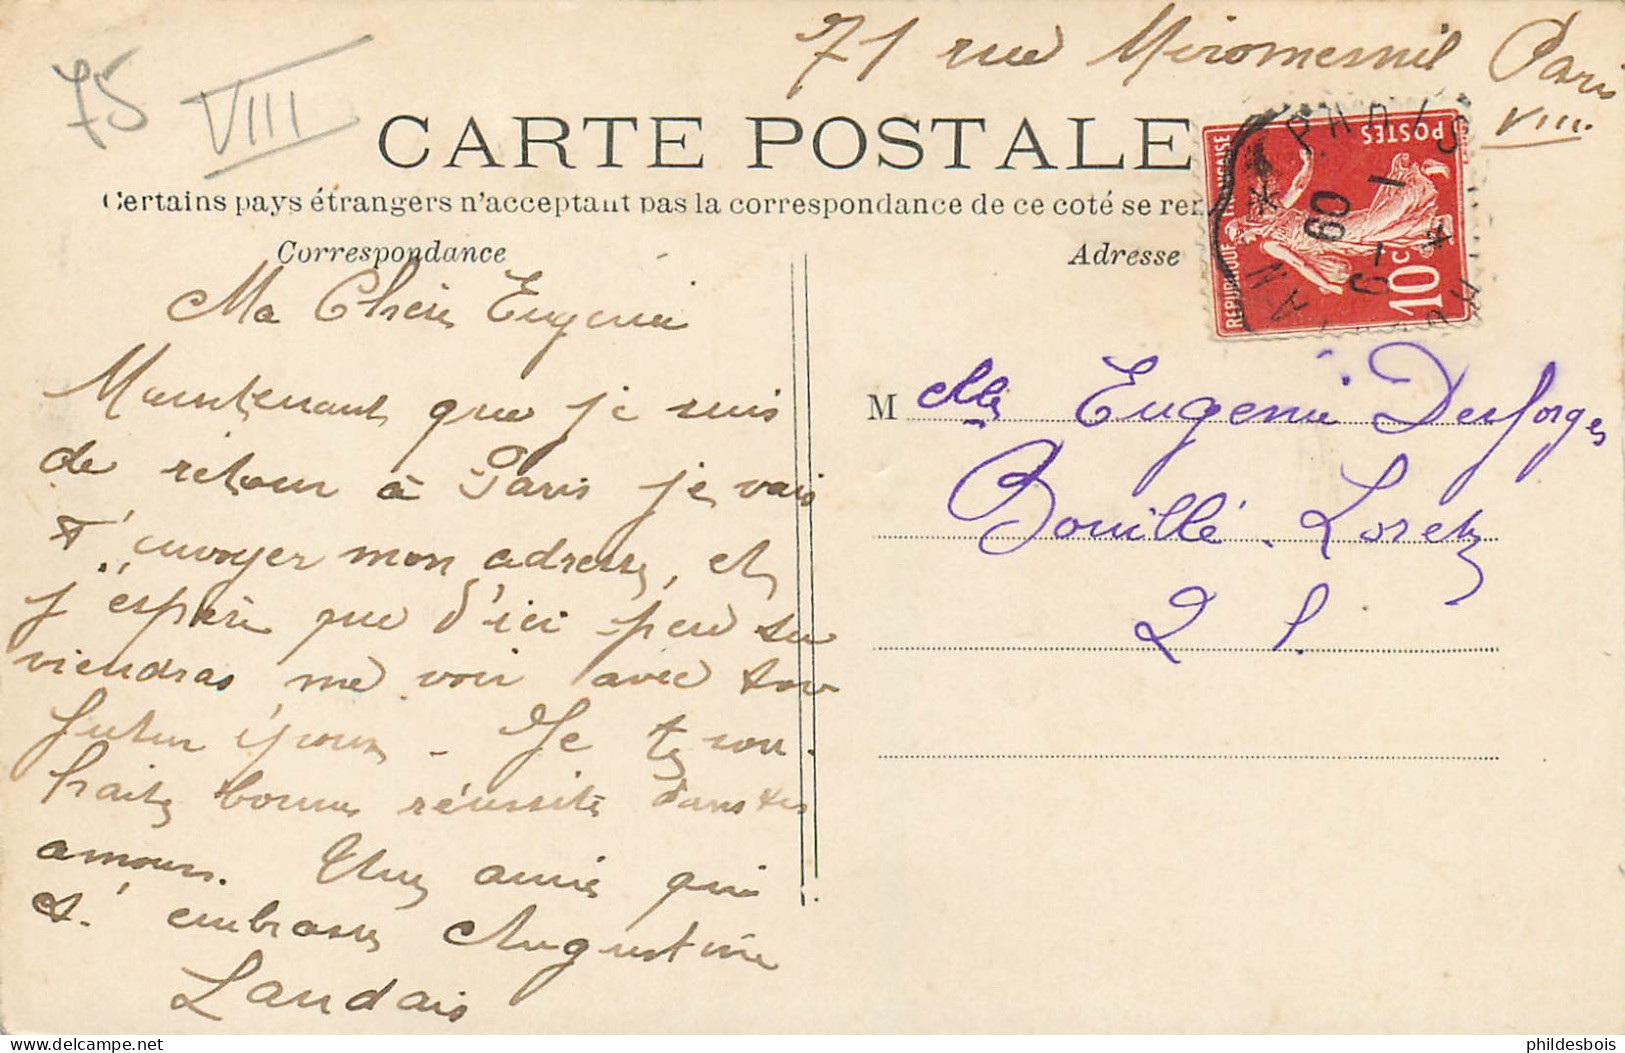 71 rue Miromesnil Paris
VIII.
75 VIII
CARTE POSTALE
Certains pays étrangers n'acceptant pas la correspondance de ce coté se
Correspondance
Adresse
REPUBLIQUE FRANÇAISE
POSTES
10c
PARIS
6 - 1
09
Ma Chère Eugénie
Maintenant que je suis
de retour à Paris je vais
t'envoyer mon adresse, et
j'espère que d'ici peu tu
viendras me voir avec ton
futur époux - Je te sou-
haite bonne réussite dans tes
amours. Une amie qui
t'embrasse Augustine
Landais
M elle Eugenie Desforges
Bouillé-Loretz
2 S.
phildesbois
Delcampe.net